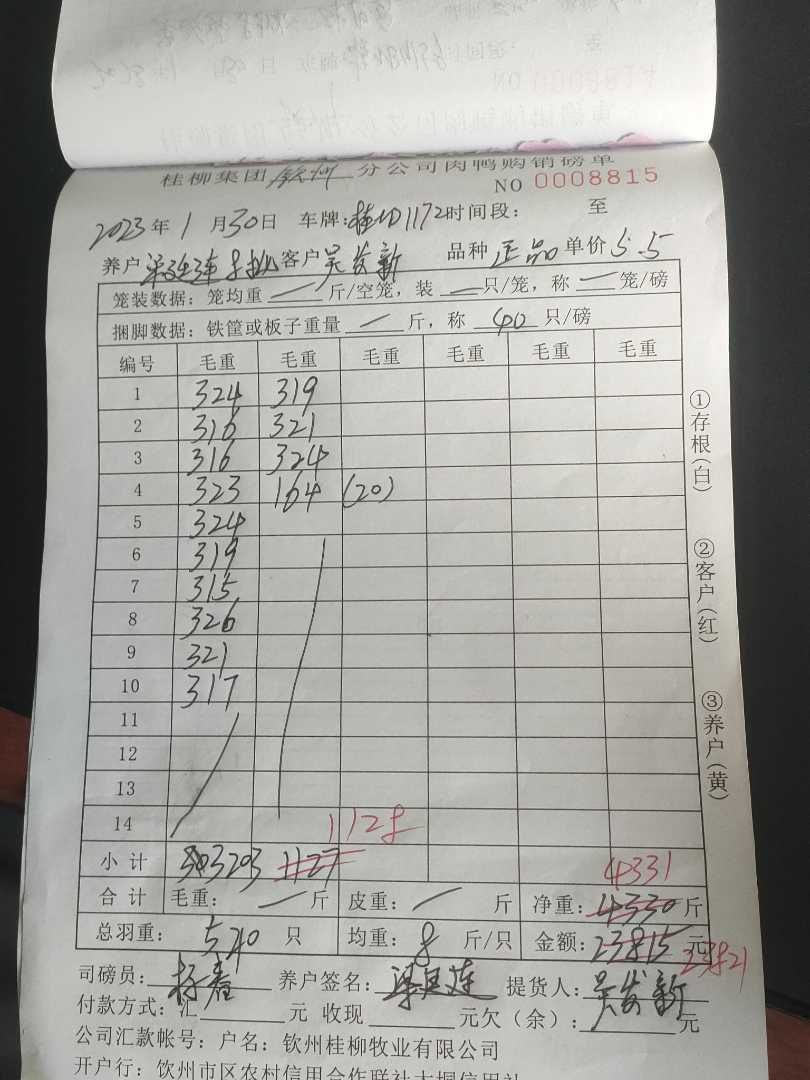 桂柳集团钦州分公司肉鸭购销磅单
NO 0008815
2023年1月30日 车牌:桂 1172时间段: 至
养户 客户吴发新 品种正品单价5.5
笼装数据: 笼均重 — 斤/空笼, 装 — 只/笼, 称 — 笼/磅
捆脚数据: 铁筐或板子重量 — 斤, 称 40 只/磅
编号 毛重 毛重 毛重 毛重 毛重 毛重
1 324 319
2 316 321
3 316 324
4 323 164 (20)
5 324
6 319
7 315
8 326
9 321
10 317
11
12
13
14 1128
小计 3203 1127 4331
合计 毛重: — 斤 皮重: — 斤 净重: 4330 斤
总羽重: 540 只 均重: 8 斤/只 金额: 23815 元 23821
司磅员: 养户签名: 提货人: 吴发新
付款方式: 汇 元 收现 元欠(余): 元
公司汇款帐号: 户名: 钦州桂柳牧业有限公司
开户行: 钦州市区农村信用合作联社大垌信用社
①存根(白)
②客户(红)
③养户(黄)